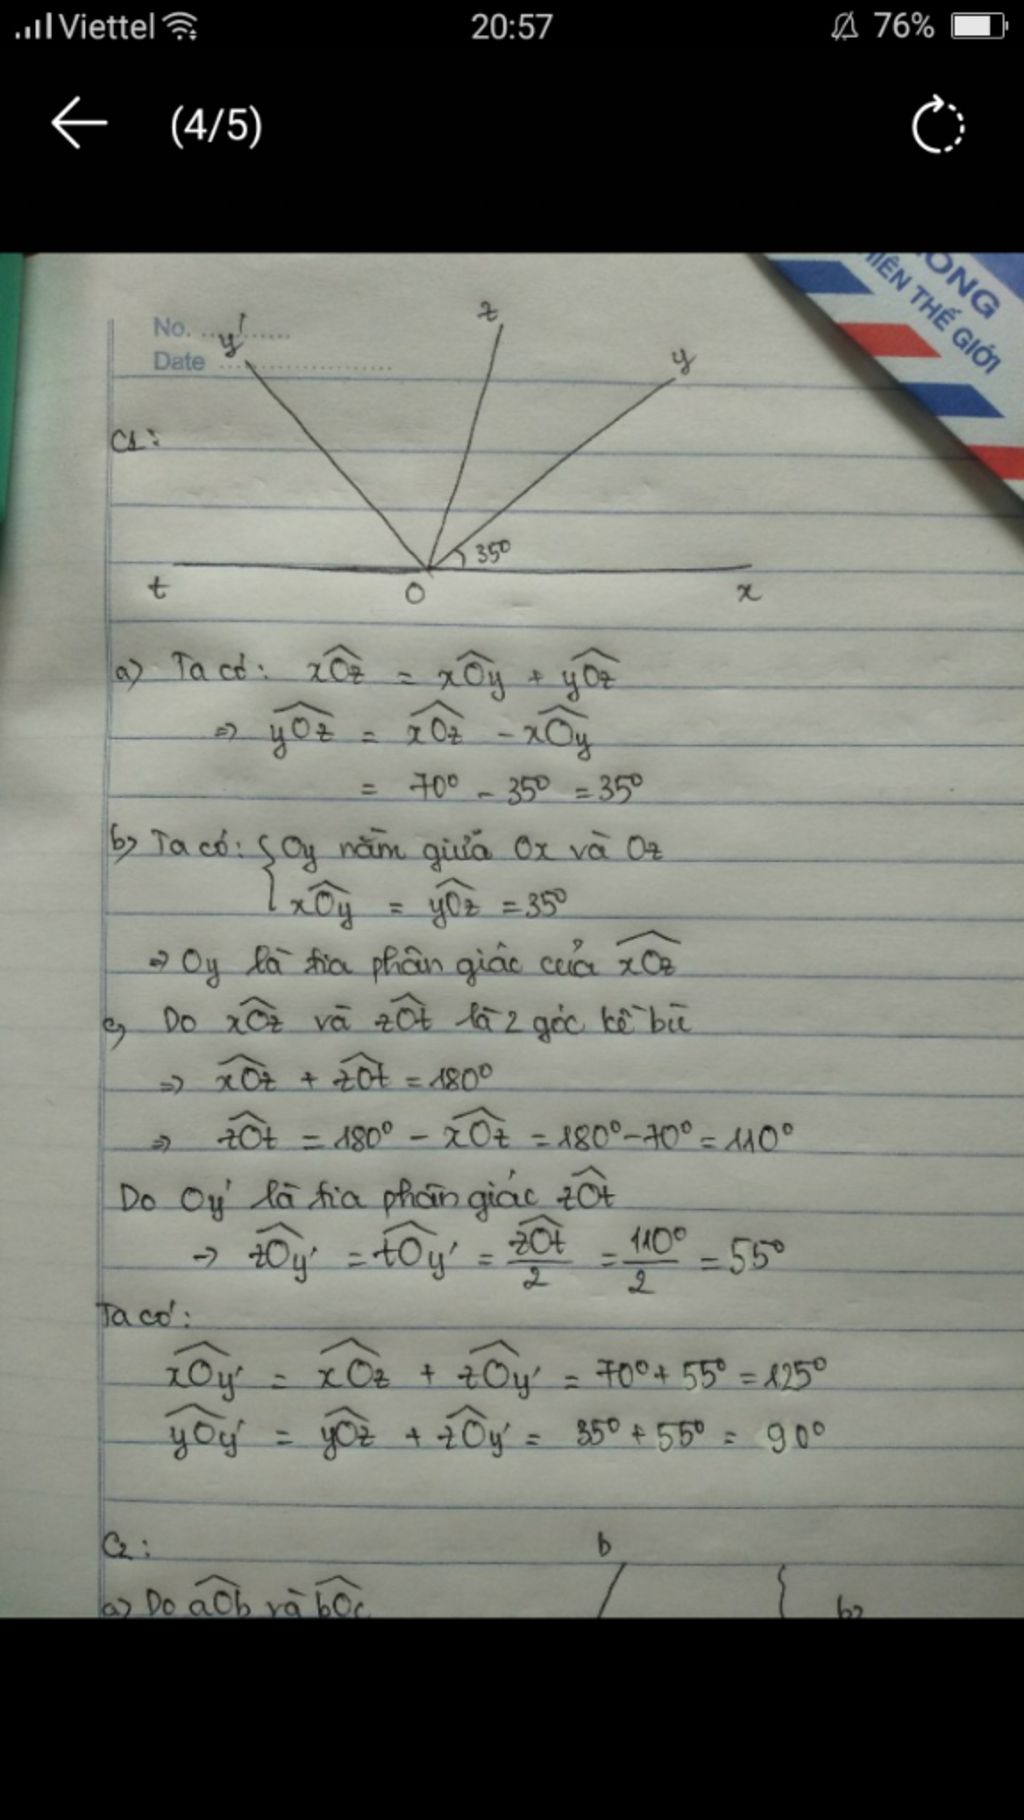 Viettel 20:57 76%
(4/5)
ONG
IÊN THẾ GIỚI
No. ............
Date ....................
y' z y
C1:
35°
t O x
a) Ta có: xÔz = xÔy + yÔz
=> yÔz = xÔz - xÔy
= 70° - 35° = 35°
b) Ta có: { Oy nằm giữa Ox và Oz
xÔy = yÔz = 35°
=> Oy là tia phân giác của xÔz
c) Do xÔz và zÔt là 2 góc kề bù
=> xÔz + zÔt = 180°
=> zÔt = 180° - xÔz = 180° - 70° = 110°
Do Oy' là tia phân giác zÔt
-> zÔy' = tÔy' = zÔt/2 = 110°/2 = 55°
Ta có:
xÔy' = xÔz + zÔy' = 70° + 55° = 125°
yÔy' = yÔz + zÔy' = 35° + 55° = 90°
C2: b
a) Do aÔb và bÔc { b)